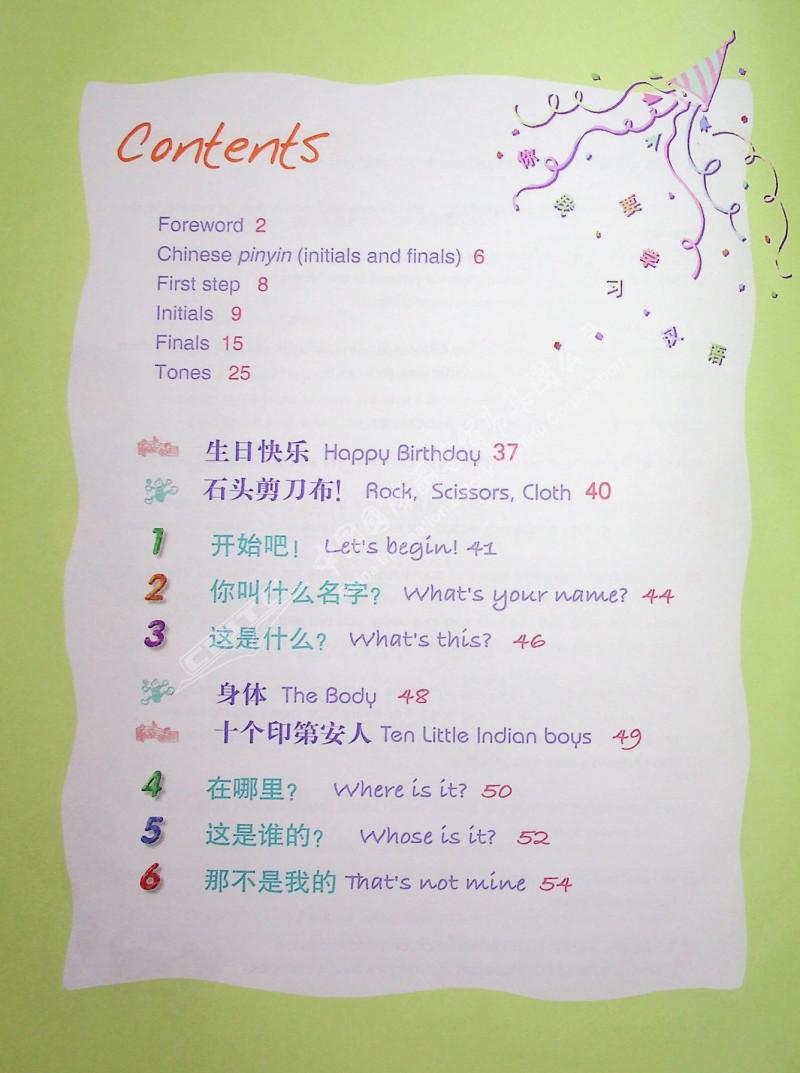 Contents
Foreword 2
Chinese pinyin (initials and finals) 6
First step 8
Initials 9
Finals 15
Tones 25
生日快乐 Happy Birthday 37
石头剪刀布! Rock, Scissors, Cloth 40
1 开始吧! Let's begin! 41
2 你叫什么名字? What's your name? 44
3 这是什么? What's this? 46
身体 The Body 48
十个印第安人 Ten Little Indian boys 49
4 在哪里? Where is it? 50
5 这是谁的? Whose is it? 52
6 那不是我的 That's not mine 54
你
学
习
汉
语